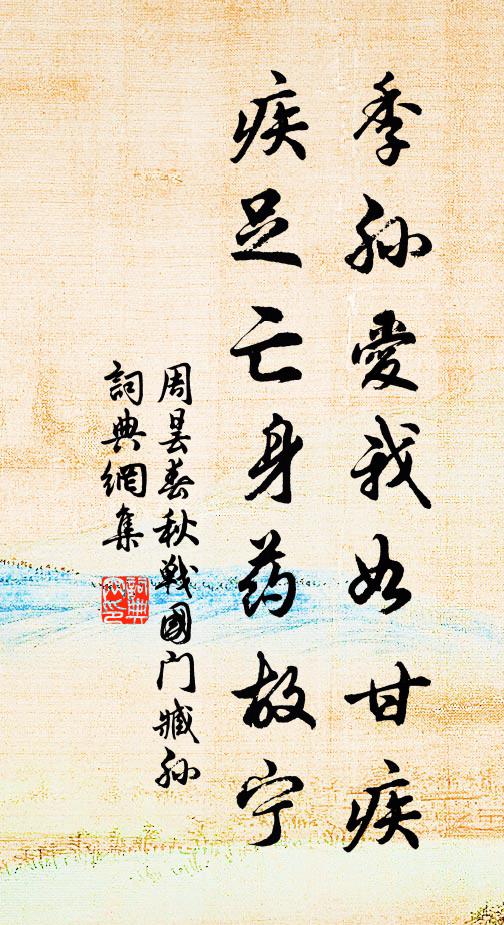 季孙愛我如甘疾
疾足亡身药故宁
周昙春秋戦國门臧孙
詞典網集